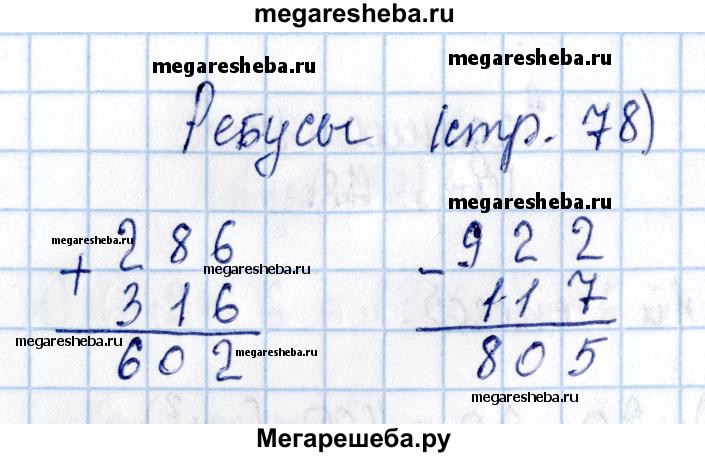 megaresheba.ru
megaresheba.ru megaresheba.ru
Ребусы (стр. 78)
megaresheba.ru
megaresheba.ru
+ 286
megaresheba.ru
316
602
megaresheba.ru
megaresheba.ru
- 922
117
805
megaresheba.ru
Мегарешеба.ру